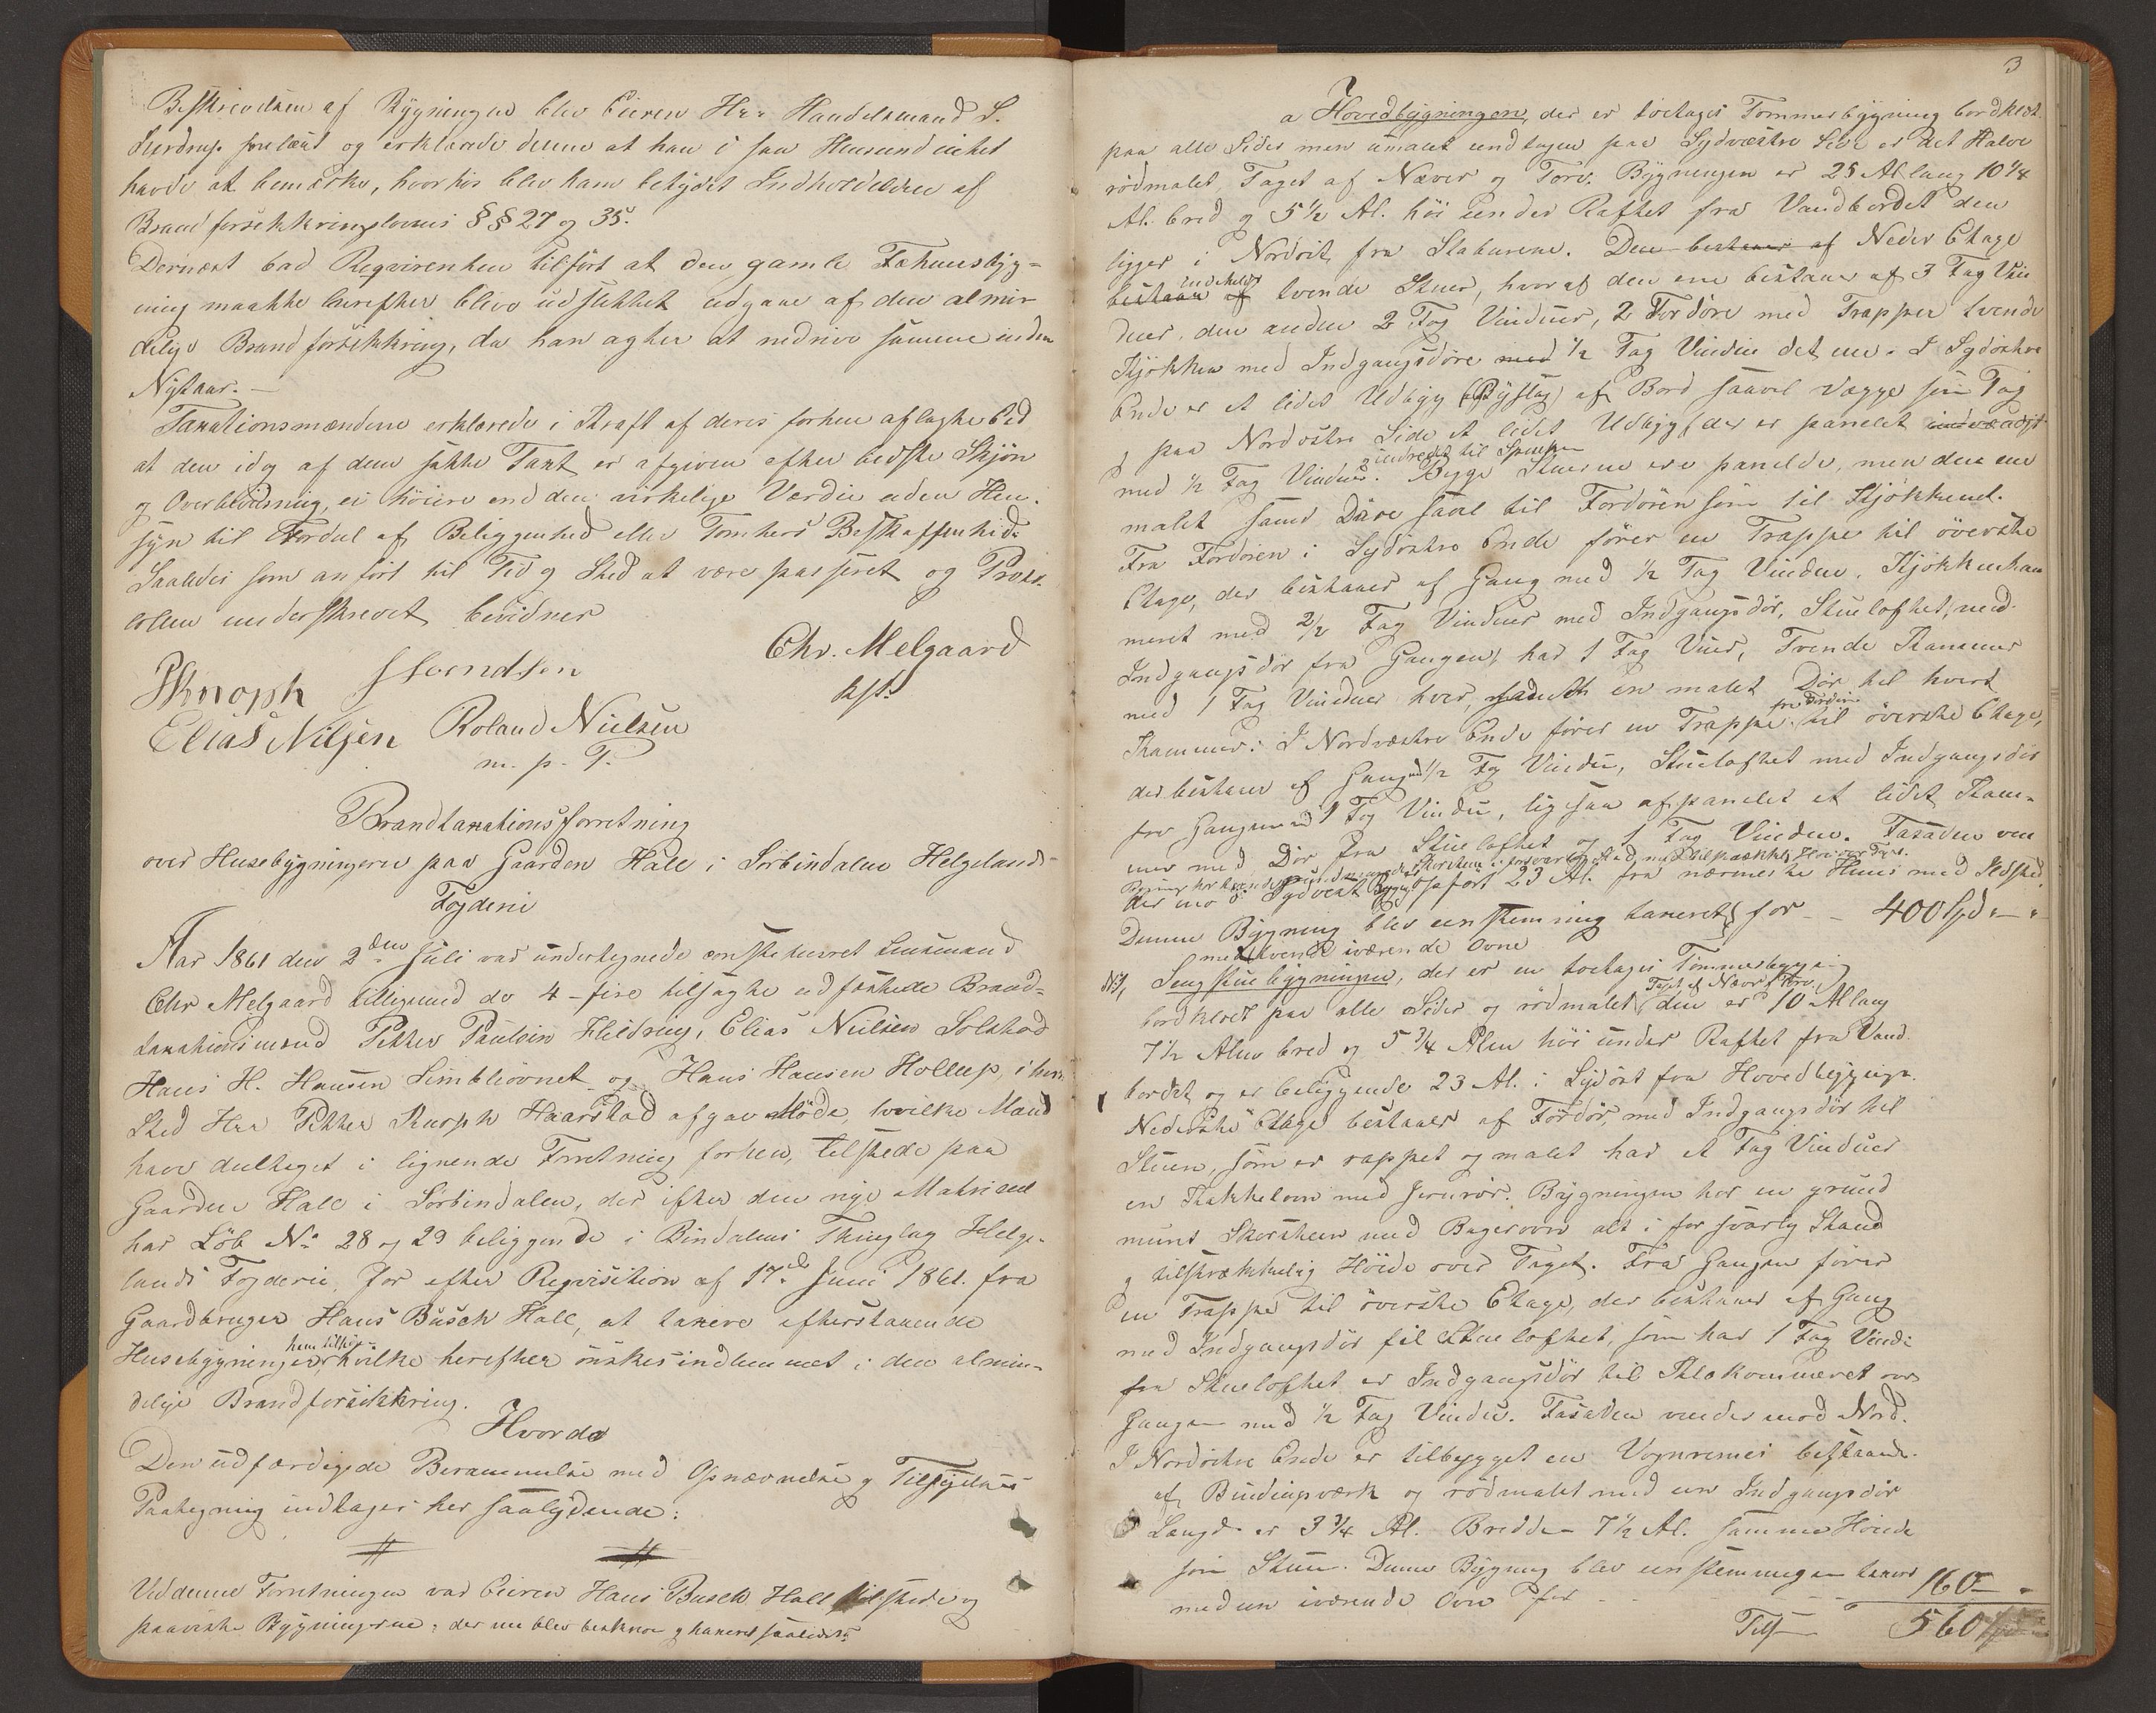 Beskrivelsen af Bygningen blev Eieren Hrr Handelsmand S.
forelæst og erklærede denne at han i saa Henseende intet
havde at bemærke, hvorhos blev ham betydet Indholdelsen af
Brandforsikkringslovens §§ 27 og 35.
Dernæst bad Reqvirenten tilført at den gamle Fæhuusbyg-
ning maatte herefter blive udslettet udgaae af den almin
delige Brandforsikkring, da han agter at nedrive samme inden
Nytaar. —
Taxationsmændene erklærede i Kraft af deres forhen aflagte Eed
at den idag af dem satte Taxt er afgiven efter bedste Skjøn
og Overbeviisning, ei høiere end den virkelige Værdie uden Hen-
syn til Fordeel af Beliggenhed eller Tomters Beskaffenhed.
Saaledes som anført til Tid og Sted at være passeret og Proto-
collen underskrevet bevidner
Chr. Melgaard
kst.
PKnoph SSvendsen
Elias Nilsen Roland Nielsen
m. p. P.
Brandtaxationsforretning
over Husebygningerne paa Gaarden Hall i Sørbindalen Helgelands
Fogderie
Aar 1861 den 2den Juli var undertegnede constitueret Lensmand
Chr Melgaard tilligemed de 4 - fire tilsagte edfæstede Brand-
taxationsmænd Petter Paulsen Heldring, Elias Nielsen Solstad
Hans H. Hansen Simblisvnet og Hans Hansen Hollup, i hvis
Sted Hrr Petter Knoph Haarstad afgav Møde, hvilke Mænd
have deeltaget i lignende Forretning forhen, tilstede paa
Gaarden Hall i Sørbindalen, der efter den nye Matricul
har Løb No 28 og 29 beliggende i Bindalens Thinglag Helge-
lands Fogderie, for efter Reqvisition af 17de Juni 1861 fra
Gaardbruger Hans Busch Hall, at taxere efterstaaende
ham tilhør.
Husebygninger, hvilke herefter ønskes indlemmet i den almin-
delige Brandforsikkring.
Hvorda
Den udfærdigede Berammelse med Opnævnelse og Tilsigelses
Paategning indtages her saalydende:
# #
Ved denne Forretningen var Eieren Hans Busch Hall tilstede og
paaviste Bygningerne, der nu blev beskreve og taxeret saaledes:
3
a Hovedbygningen, der er toetages Tømmerbygning bordklæd.
paa alle Sider men umalet undtagen paa Sydvæstre Side er det Halve
rødmalet, Taget af Næver og Torv. Bygningen er 25 Al lang 10 1/4
Al. bred og 5 1/2 Al. høi under Raftet fra Vandbordet den
ligger i Nordost fra Staburene. Den bestaaer af Neder Etage
indeholder
bestaaer af tvende Stuer, hvoraf den ene bestaaer af 3 Fag Vin
duer, den anden 2 Fag Vinduer, 2 Fordøre med Trapper tvende
Kjøkken med Indgangsdøre med 1/2 Fag Vindue det ene. I Sydøstre
Ende er et lidet Udbyg (Byslag) af Bord saavel Vægge som Tag
og paa Nordøstre Side et lidet Udbyg, der er panelet indvændigt
indredt til Spisek
med 1/2 Fag Vinduer. Begge Stuerne ere panelde, men den ene
malet samt Døre saavel til Fordøren som til Kjøkkenet.
Fra Fordøren i Sydøstre Ende fører en Trappe til øverste
Etage, der bestaaer af Gang med 1/2 Fag Vindue, Kjøkkenkam
meret med 2/2 Fag Vinduer med Indgangsdør, Stueloftet, med
Indgangsdør fra Gangen, har 1 Fag Vind, Tvende Kammer
med 1 Fag Vinduer hver, en malet Dør til hvert
fra Fordøren
Kammer. I Nordvæstre Ende fører en Trappe til øverste Etage,
der bestaaer af Gang med 1/2 Fag Vindue, Stueloftet med Indgangsdør
fra Gangen med 1 Fag Vindue, ligesaa afpanelet et lidet Kam-
mer med Dør fra Stueloftet og 1 Fag Vindue. Fasaden ven
Skorstene i forsvarlig Stand, med tilstrækkl. Høi over Taget.
der mod Sydvest opført 23 Al. fra nærmeste Huus med Ildsted.
Denne Bygning blev eenstemmig taxeret for - - 400 Spd " - "
med tvende iværende Ovne
Sengstuebygningen, der er en toetages Tømmerbygning
Taget af Næver & Torv.
bordklædt paa alle Sider og rødmalet, den er 10 Al lang
7 1/2 Alen bred og 5 3/4 Alen høi under Raftet fra Vand
bordet og er beliggende 23 Al. i Sydost fra Hovedbygnign.
Nederste Etage bestaaer af Fordør, med Indgangsdør til
Stuen, som er rappet og malet har et Fag Vinduer
en Kakkelovn med Jernrør. Bygningen har en grund
muret Skorsteen med Bagerovn alt i forsvarlig Stand
og tilstrækkelig Høide over Taget. Fra Gangen fører
en Trappe til øverste Etage, der bestaaer af Gang
med Indgangsdør til Stueloftet, som har 1 Fag Vindu
fra Stueloftet er Indgangsdør til Klækammeret over
Gangen med 1/2 Fag Vindue. Fasaden vender mod Nord.
I Nordøstre Ende er tilbygget en Vognremis bestaaende
af Bindingsværk og rødmalet med en Indgangsdør
Længd. er 3 3/4 Al. Bredde 7 1/2 Al. samme Høide
som Stuen. Denne Bygning blev eenstemmigen taxeret
med een iværende Ovn for - - - 160 - "
Tils 560 Spd